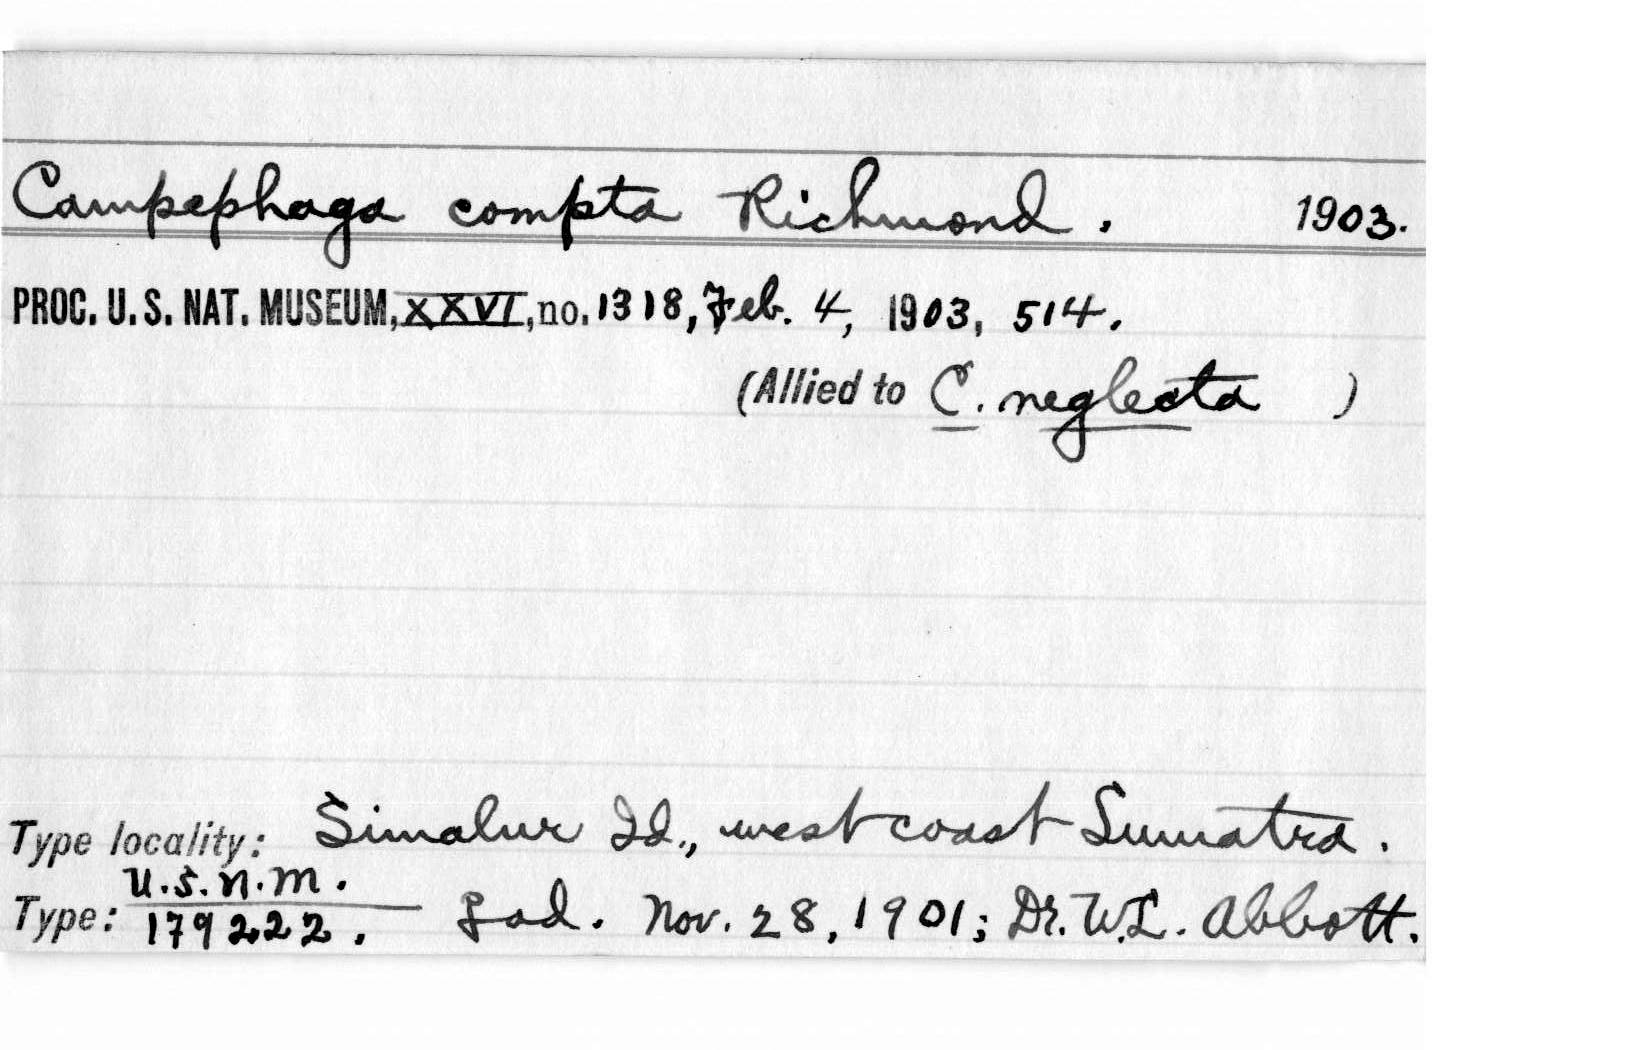 Campephaga compta Richmond. 1903.
PROC. U. S. NAT. MUSEUM, XXVI, no. 1318, Feb. 4, 1903, 514.
(Allied to C. neglecta )
Type locality: Simalur Id., west coast Sumatra.
U.S.N.M.
Type: 179222. ♂ ad. Nov. 28, 1901; Dr. W.L. Abbott.